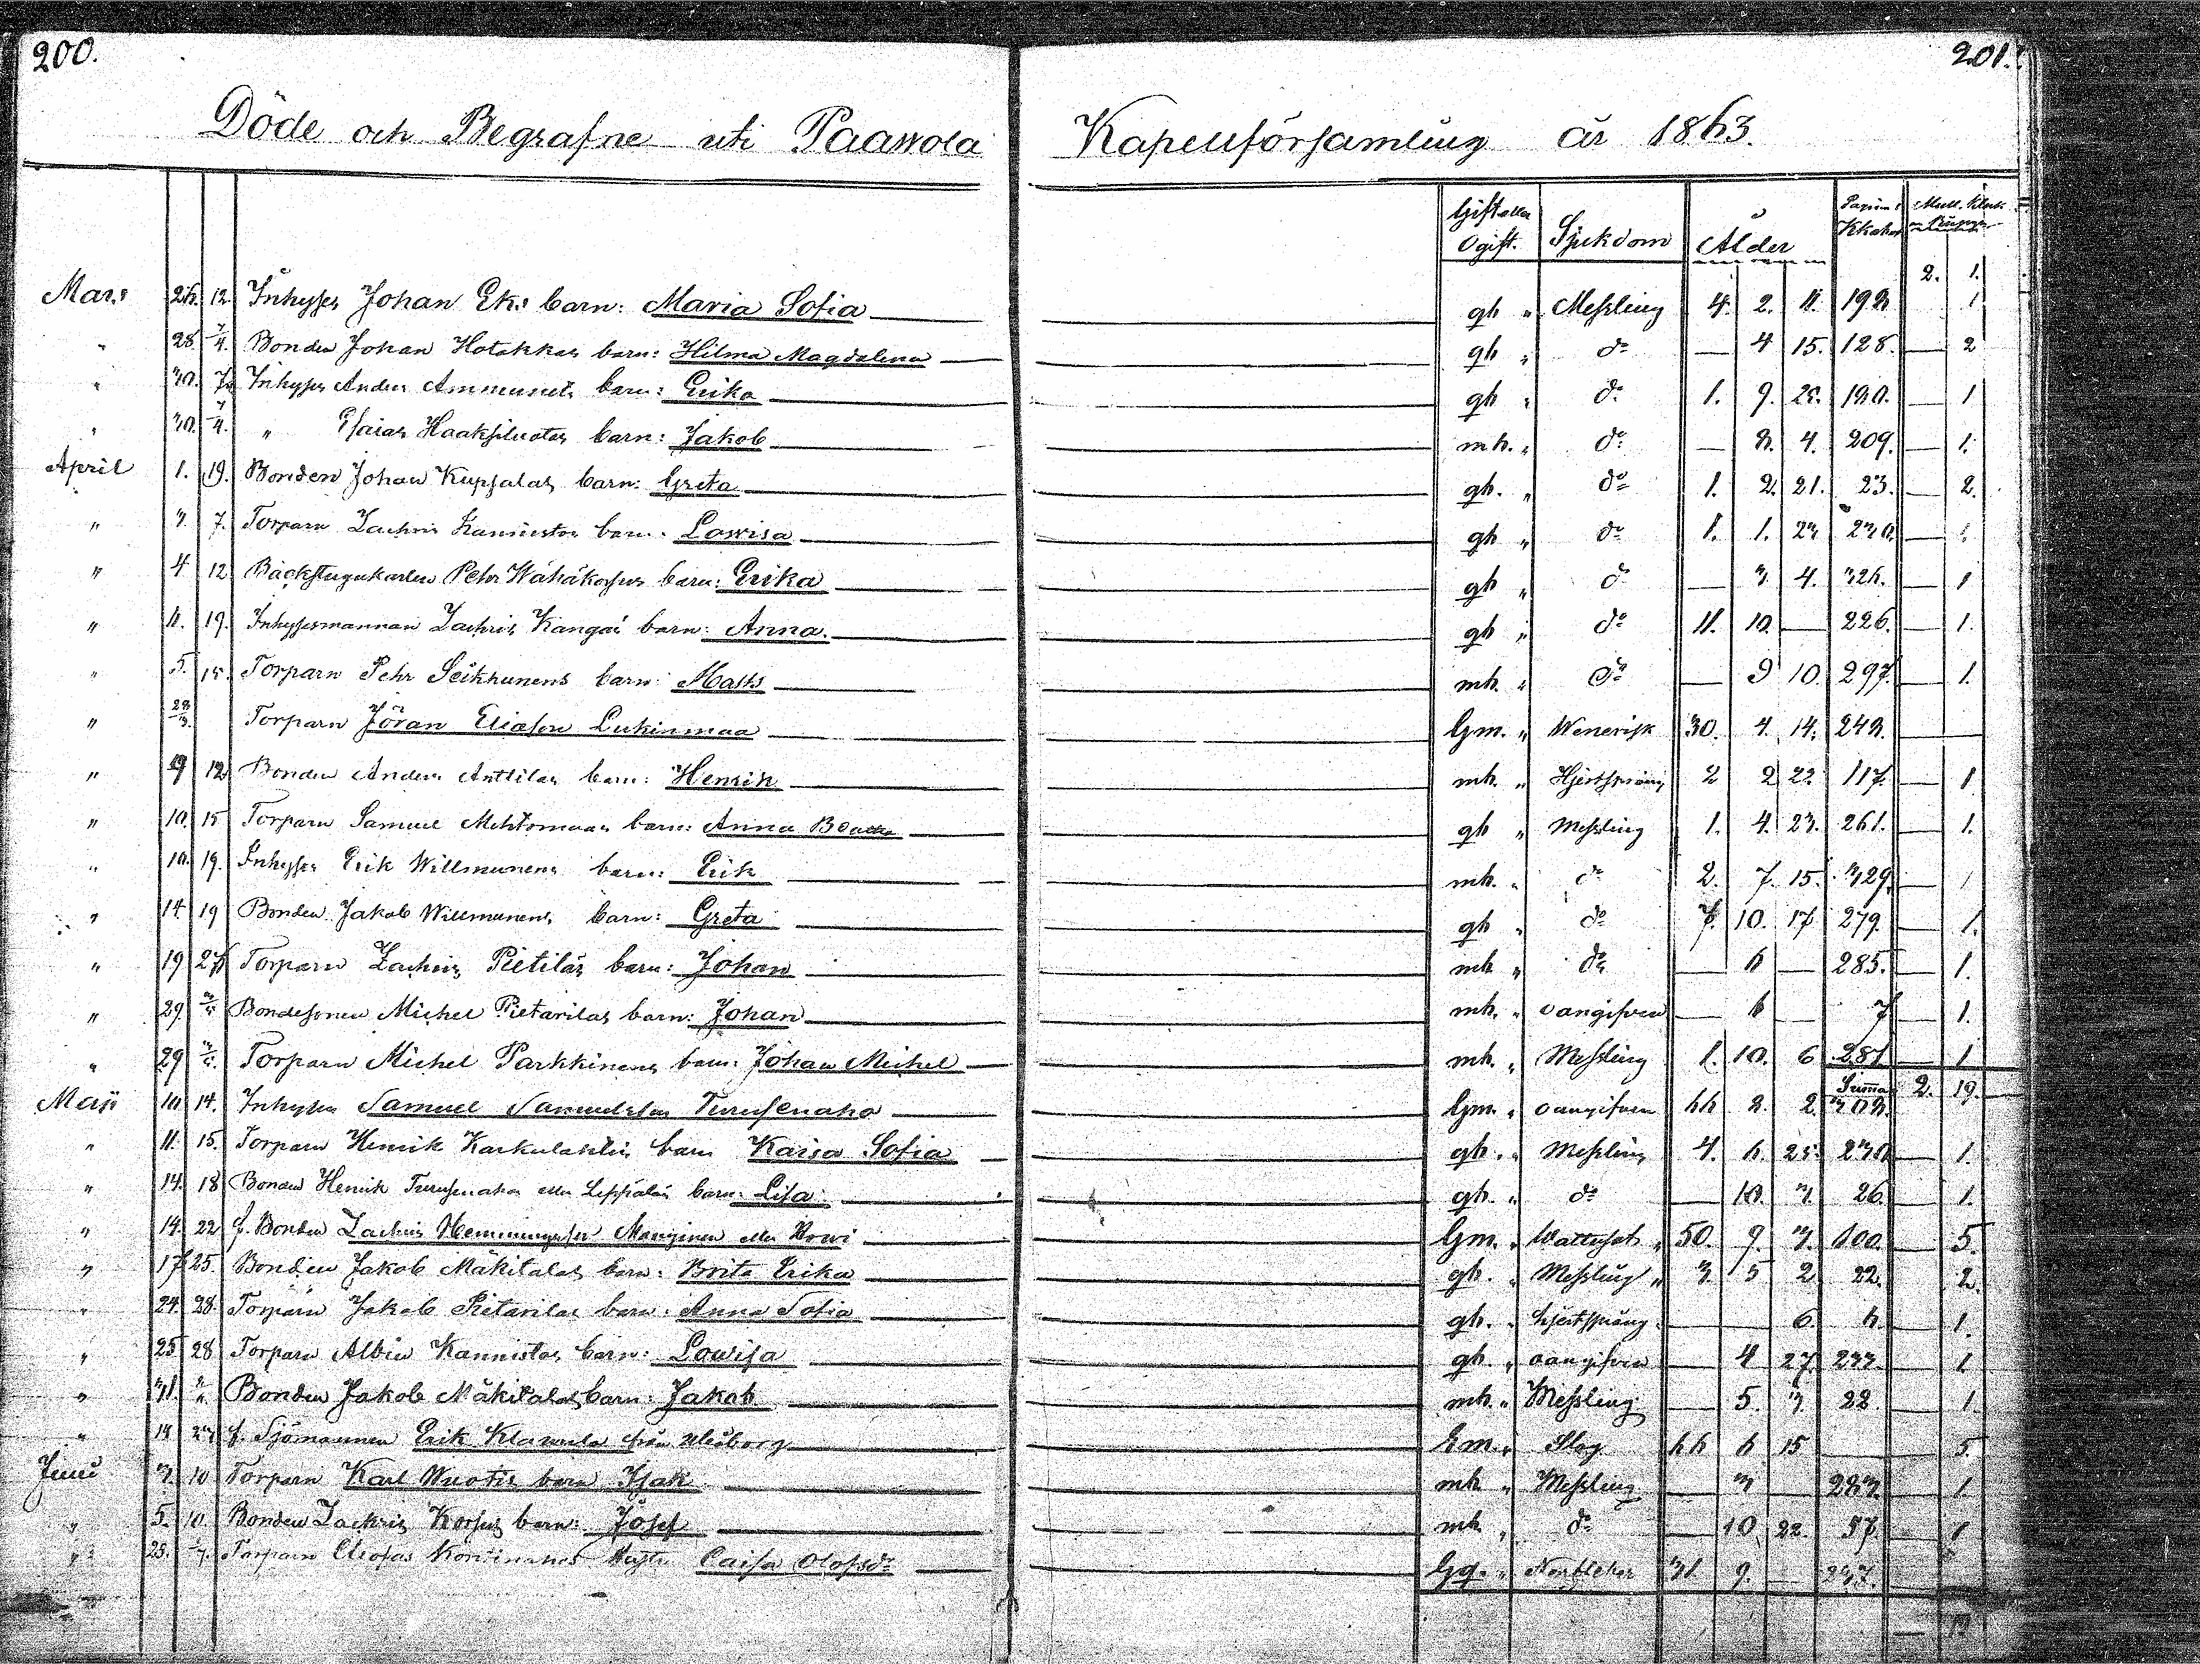 200.
201.
Döde och Begrafne uti Paawola Kapellförsamling år 1863.
Gift eller Ogift. Sjukdom Ålder
2. 1.
Mars 26. 12. Inhyses Johan Eks barn: Maria Sofia gh " Messling 4. 2. 11. 193 1
" 28. 7/4. Bonden Johan Hotakkas barn: Hilma Magdalena gh " do — 4 15. 128. — 2
" 30. Inhyses Anders Ammunets barn: Erika gh " do 1. 9. 25. 190. — 1
" 30. 7/4. " Esaias Haaksiluotos barn: Jakob mh. " do — 3. 4. 209. — 1.
April 1. 19. Bonden Johan Kupsalas barn: Greta gh. " do 1. 2. 21. 23. — 2.
" 3. 7. Torparn Zachris Kannistos barn: Lowisa gh " do 1. 1. 23 230 —
" 4 12 Bäckstugukarlen Pehr Wähäkorpus barn: Erika gh " do — 3. 4. 326. — 1
" 4. 19. Inhysesmannan Zachris Kangas barn: Anna. gh " do 11. 10. — 226. — 1.
" 5. 15. Torparn Pehr Seikkunens barn: Matts mh. " do — 9 10. 297. — 1.
" 28/3. Torparn Jöran Eliason Lukinmaa Gm. " Wenerisk 30. 4. 14. 243. —
" 9 12. Bonden Anders Anttilas barn: Henrik mh. " Hjertsprång 2 2 22. 117. — 1
" 10. 15 Torparn Samuel Mehtomaas barn: Anna Beatta gh " Messling 1. 4. 23. 261. — 1.
" 10. 19. Inhyses Erik Willmunens barn: Erik mh. " do 2. 7. 15. 329. — 1
" 14 19 Bonden Jakob Willmunens barn: Greta gh " do 7. 10. 17 279. — 1.
" 19 27 Torparn Zachris Pietiläs barn: Johan mh " do — 6 — 285. — 1.
" 29. Bondesonen Michel Pietarilas barn: Johan mh. " oangifven — 6 — 7 — 1.
" 29 Torparn Michel Parkkinens barn: Johan Michel mh. " Messling 1. 10. 6 281. — 1
Summa 2. 19.
Maji 10 14. Inhyses Samuel Samuelsson Turusenaho Gm. " oangifven 66 3. 2. 303.
" 11. 15. Torparn Henrik Karkulahtis barn Kaisa Sofia gh. " Messling 4. 6. 25. 230 — 1.
" 14. 18 Bonden Henrik Turusenahos eller Leppäläs barn: Lisa gh. " do — 10. 3. 26. — 1.
" 14. 22 f. Bonden Zachris Hemmingsson Manginen eller Rowi Gm. " Wattusot " 50. 9. 3. 100. — 5.
" 17 25. Bonden Jakob Mäkitalos barn: Brita Erika gh. " Messling " 3. 5 2 22. 2.
" 24. 28. Torparn Jakob Pietarilas barn: Anna Sofia gh. " hjertsprång. 6. 6. — 1.
" 25 28 Torparn Albin Kannistos barn: Lowisa gh. " oangifven — 4 27. 233. — 1
" 31. Bonden Jakob Mäkitalos barn: Jakob mh. " Messling — 5. 3. 22. — 1.
" 14 27 f. Sjömannen Erik Klawula från Uleåborg Em. " Slag 66 6 15 — 5.
Juni 3. 10 Torparn Karl Wuotis barn Isak mh " Messling — 3 — 283. — 1
" 5. 10. Bonden Zachris Korpus barn: Josef mh " do — 10 22. 57. — 1
" 25. Torparn Cleofas Kontinenes Hustru Caisa Olofsdr Gq. " Nerffeber 31. 9. — 237.